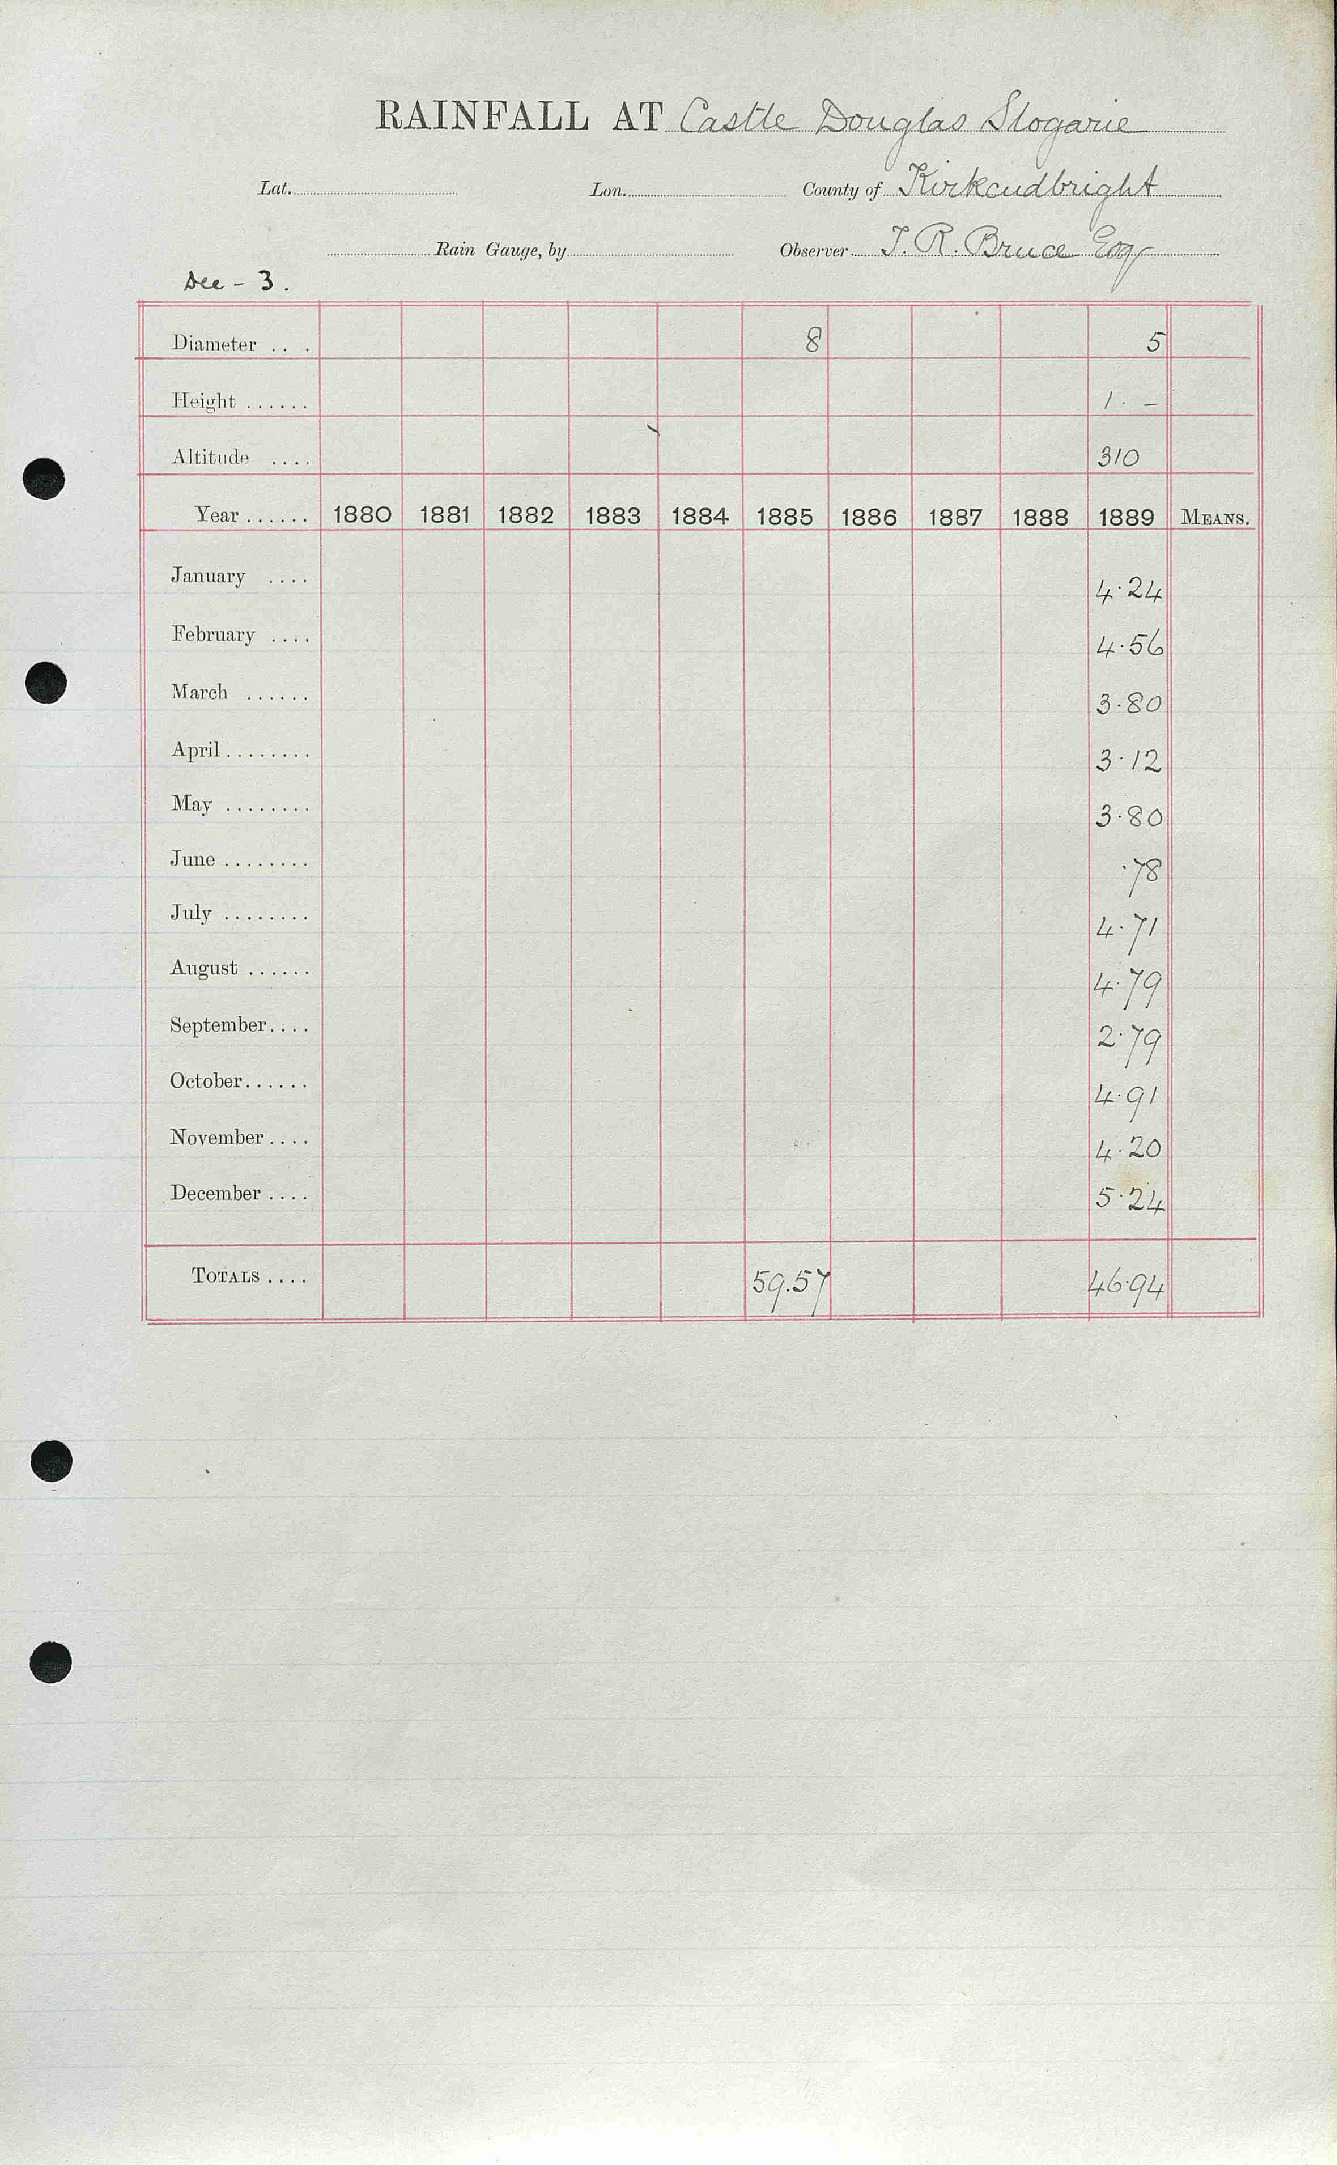 RAINFALL AT Castle Douglas Slogarie
Lat. Lon. County of Kirkcudbright
Rain Gauge, by Observer J. R. Bruce Esqr
Dee - 3.
Diameter . . . 8 5
Height ...... 1. -
Altitude .... 310
Year ...... 1880 1881 1882 1883 1884 1885 1886 1887 1888 1889 MEANS.
January .... 4.24
February .... 4.56
March ...... 3.80
April ........ 3.12
May ........ 3.80
June ........ .78
July ........ 4.71
August ...... 4.79
September .... 2.79
October ...... 4.91
November .... 4.20
December .... 5.24
TOTALS .... 59.57 46.94